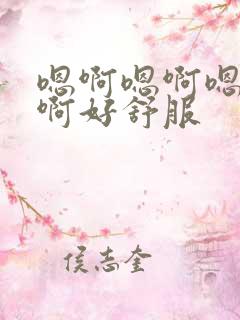 嗯啊嗯啊嗯
啊好舒服
侯志奎